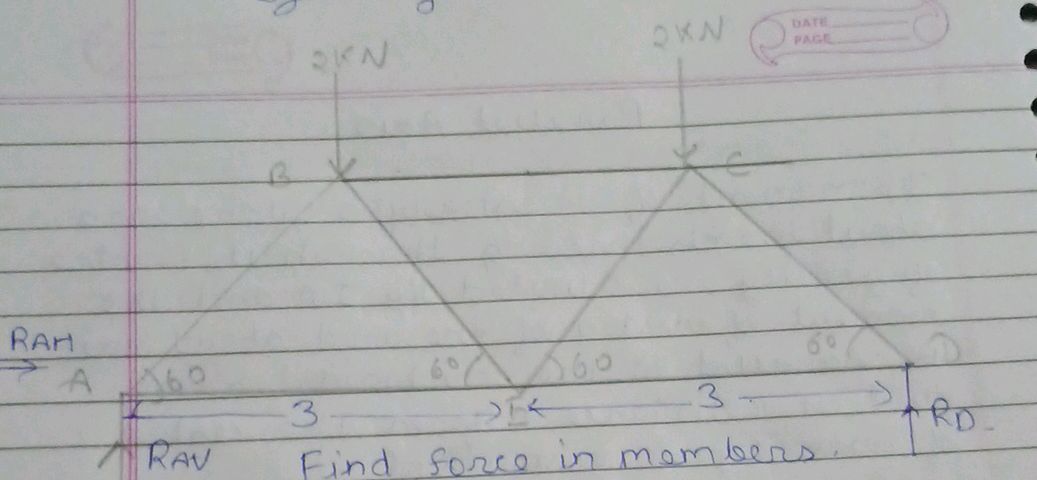 DATE
PAGE
2KN 2KN
B C
RAH
A 60 60 60 60 D
3 E 3
RAV RD
Find force in members.